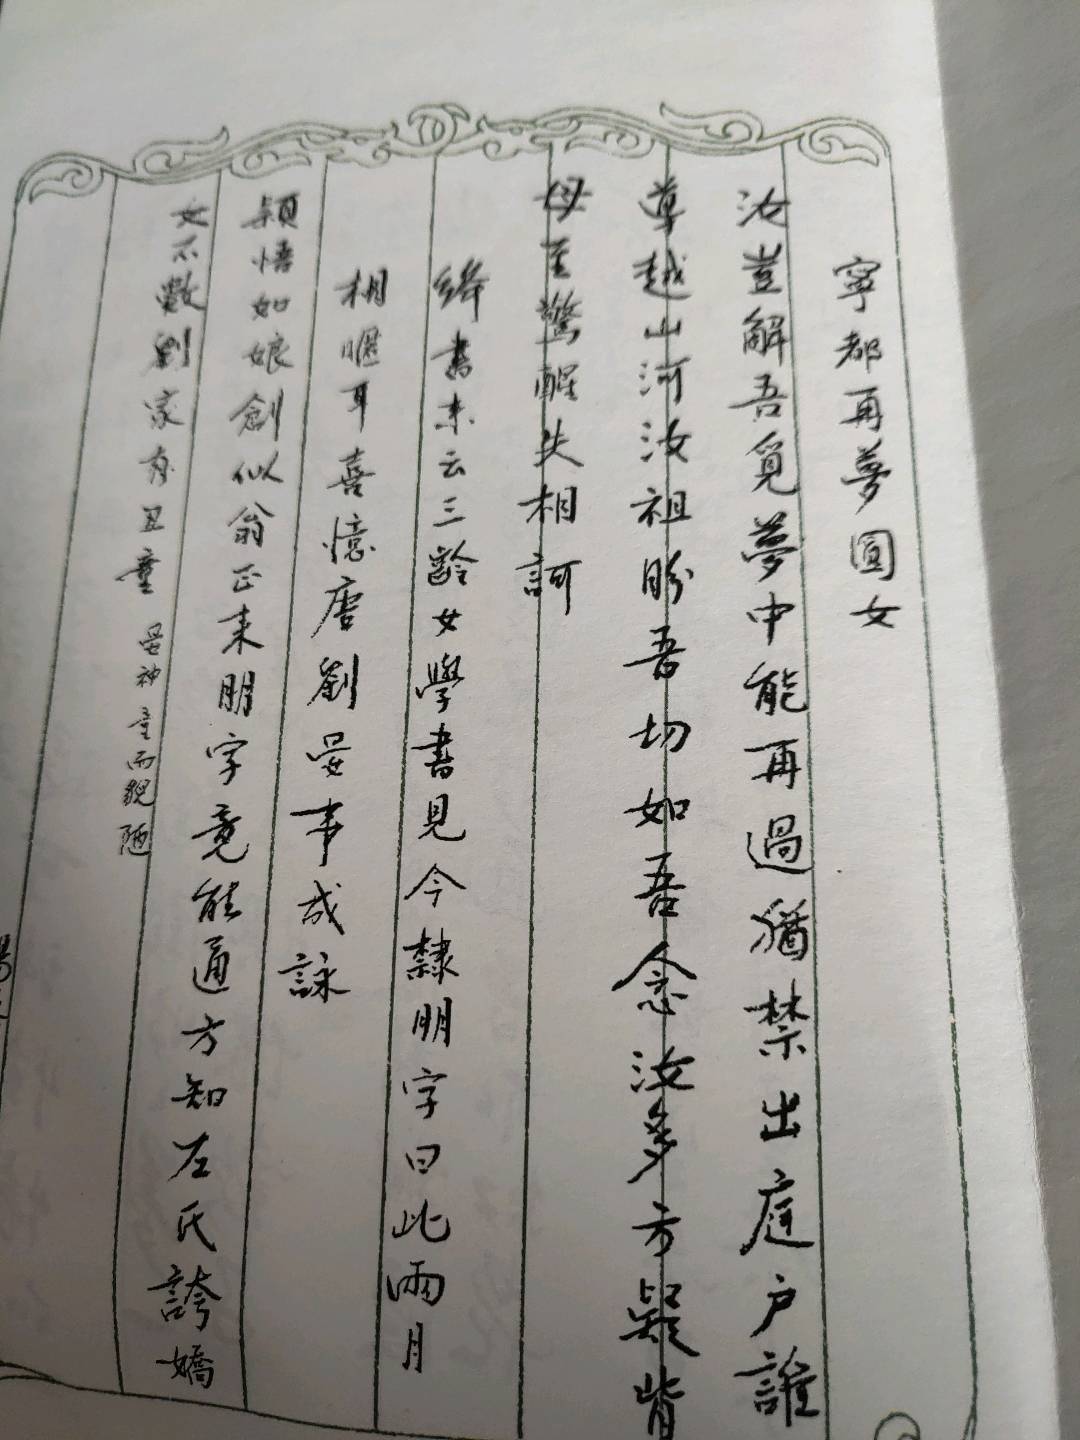 寧都再夢圓女
汝豈解吾覓夢中能再過猶禁出庭户誰
導越山河汝祖盼吾切如吾念汝多方疑背
母至驚醒失相訶
絳書來云三齡女學書見今隸朋字曰此兩月
相暱耳喜憶唐劉晏事成詠
穎悟如娘創似翁正來朋字竟能通方知左氏誇嬌
女不數劉家有丑童 晏神童而貌陋